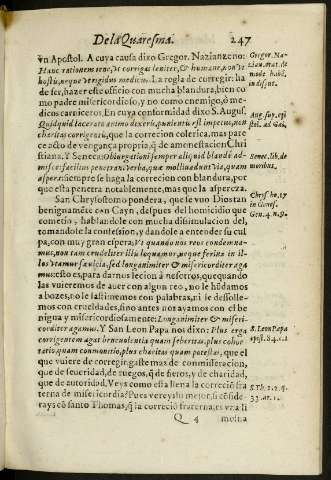 De la Quaresma. 247
vn Apostol. A cuya causa dixo Gregor. Nazianzeno:
Hanc rationem tene, vt corrigas leniter, & humane, non vt
hostis, neque vt rigidus medicus. La regla de corregir: ha
de ser, hazer este officio con mucha blandura, bien co
mo padre misericordioso, y no como enemigo, ò me
dicos carniceros. En cuya conformidad dixo S. Augus.
Quidquid lacerato animo dixeris, punientis est impetus, non
charitas corrigentis, que la correcion colerica, mas pare
ce acto de vengança propria, q̃ de amonestacion Chri
stiana. Y Seneca: Obiurgationi semper aliquid blandi ad-
misce: facilius penetrant verba, quæ mollia vadunt via, quam
aspera: siempre se haga la correcion con blandura, por
que esta penetra notablemente, mas que la aspereza.
San Chrysostomo pondera, que se vuo Dios tan
benignamẽte con Cayn, despues del homicidio que
cometio, y hablandole con mucha dissimulacion del,
tomandole la confession, y dandole a entender su cul
pa, con muy gran espera: Vt quando nos reos condemna-
mus, non tam crudeliter illis loquamur, neque feritas in il-
los tramus sæuitia, sed longanimiter & misericorditer aga
mus: esto es, para darnos lecion à nosotros, que quando
las vuieremos de auer con algun reo, no le hũdamos
a bozes, no le lastimemos con palabras, ni le desolle-
mos con crueldades, sino antes nos ayamos con el be
nigna y misericordiosamente: Longanimiter & miseri-
corditer agamus. Y San Leon Papa nos dixo: Plus erga
corrigentem agat beneuolentia quam seueritas, plus cohor
tatio, quam commonitio, plus charitas quam potestas, que el
que vuiere de corregir gaste mas de commiseracion,
que de seueridad, de ruegos, q̃ de fieros, y de charidad,
que de autoridad. Veys como esta llena la correciõ fra
terna de misericordia? Pues vereys lo mejor, si cõside-
rays cõ santo Thomas, q̃ la correciõ fraterna, es vna li
Q 4 mosna
Gregor. Na-
August. epi
stol. ad Gal.
Senec. lib. de
moribus.
in Genes.
Gen. 4. n. 9.
S. Leon Papa
epist. 84. c. 1
S. Th. 2. 2. q.
33. ar. 1.